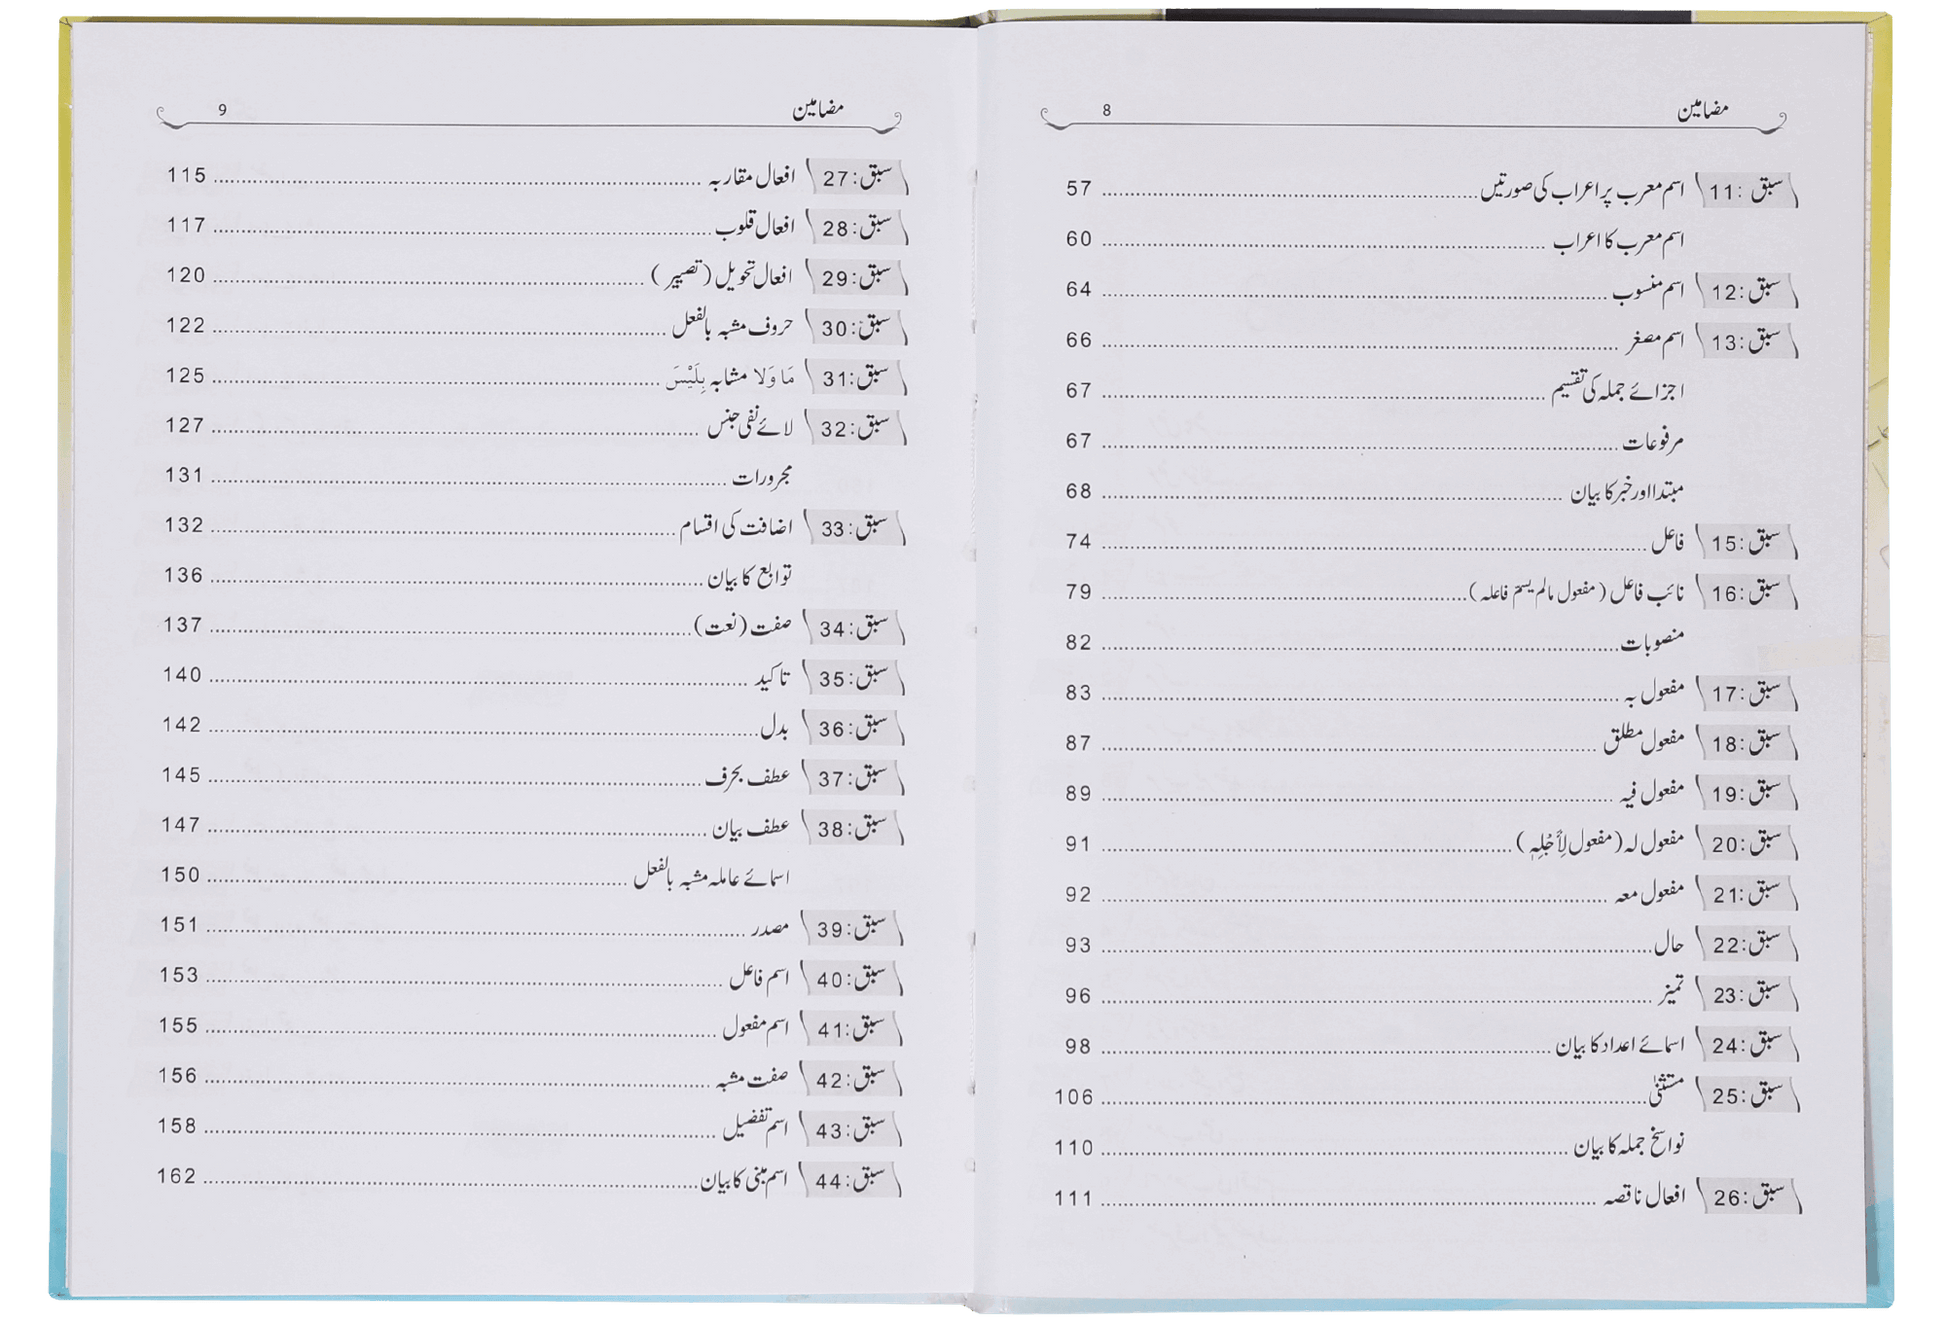 مضامین 8
سبق :11 اسم معرب پر اعراب کی صورتیں 57
اسم معرب کا اعراب 60
سبق :12 اسم منسوب 64
سبق :13 اسم مصغر 66
اجزائے جملہ کی تقسیم 67
مرفوعات 67
مبتدا اور خبر کا بیان 68
سبق :15 فاعل 74
سبق :16 نائب فاعل (مفعول مالم یسمّ فاعلہ) 79
منصوبات 82
سبق :17 مفعول بہ 83
سبق :18 مفعول مطلق 87
سبق :19 مفعول فیہ 89
سبق :20 مفعول لہ (مفعول لِأَجْلِهٖ) 91
سبق :21 مفعول معہ 92
سبق :22 حال 93
سبق :23 تمیز 96
سبق :24 اسمائے اعداد کا بیان 98
سبق :25 مستثنیٰ 106
نواسخ جملہ کا بیان 110
سبق :26 افعال ناقصہ 111
مضامین 9
سبق :27 افعال مقاربہ 115
سبق :28 افعال قلوب 117
سبق :29 افعال تحویل (تصییر) 120
سبق :30 حروف مشبہ بالفعل 122
سبق :31 مَا وَلا مشابہ بِلَيْسَ 125
سبق :32 لائے نفی جنس 127
مجرورات 131
سبق :33 اضافت کی اقسام 132
توابع کا بیان 136
سبق :34 صفت (نعت) 137
سبق :35 تاکید 140
سبق :36 بدل 142
سبق :37 عطف بحرف 145
سبق :38 عطف بیان 147
اسمائے عاملہ مشبہ بالفعل 150
سبق :39 مصدر 151
سبق :40 اسم فاعل 153
سبق :41 اسم مفعول 155
سبق :42 صفت مشبہ 156
سبق :43 اسم تفضیل 158
سبق :44 اسم مبنی کا بیان 162